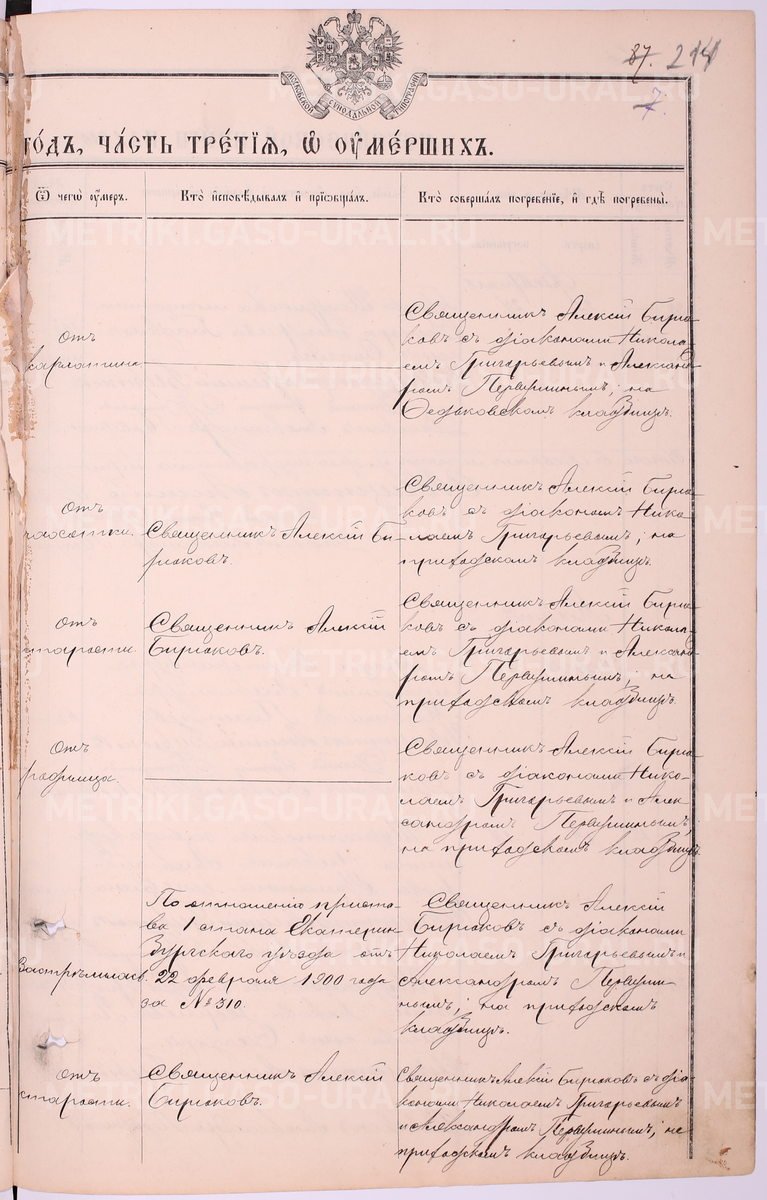 87. 214
7.
МОСКОВСКОЙ СѴНОДАЛЬНОЙ ТИПОГРАФІИ
го́дъ, ча́сть тре́тїѧ, ѡ҆ ᲂу҆ме́ршихъ.
Ѿ чегѡ̀ ᲂу҆́меръ.
Кто̀ и҆сповѣ́дывалъ и҆ прїѡбща́лъ.
Кто̀ соверша́лъ погребе́нїе, и҆ гдѣ̀ погребены̀.
отъ
карлатина
Священникъ Алексій Бирю-
ковъ съ діаконами Никола-
емъ Григорьевымъ и Алексан-
ромъ Первушинымъ; на
Федьковскомъ кладбищѣ.
отъ
чахотки.
Священникъ Алексій Би-
рюковъ.
Священникъ Алексій Бирю-
ковъ съ діакономъ Нико-
лаемъ Григорьевымъ; на
приходскомъ кладбищѣ.
отъ
старости
Священникъ Алексій
Бирюковъ.
Священникъ Алексій Бирю-
ковъ съ діаконами Никола-
емъ Григорьевымъ и Алексан-
ромъ Первушинымъ; на
приходскомъ кладбищѣ.
Отъ
родимца.
Священникъ Алексій Бирю-
ковъ съ діаконами Нико-
лаемъ Григорьевымъ и Алек-
сандромъ Первушинымъ;
на приходскомъ кладбищѣ.
Застрѣлилась.
По отношенію приста-
ва 1 стана Екатерин-
бургскаго уѣзда отъ
22 февраля 1900 года
за № 310.
Священникъ Алексій
Бирюковъ съ діаконами
Николаемъ Григорьевымъ и
Александромъ Первуши-
нымъ; на приходскомъ
кладбищѣ.
отъ
старости.
Священникъ Алексій
Бирюковъ.
Священникъ Алексій Бирюковъ съ діа-
конами Николаемъ Григорьевымъ
и Александромъ Первушинымъ; на
приходскомъ кладбищѣ.
METRIKI.GASO-URAL.RU